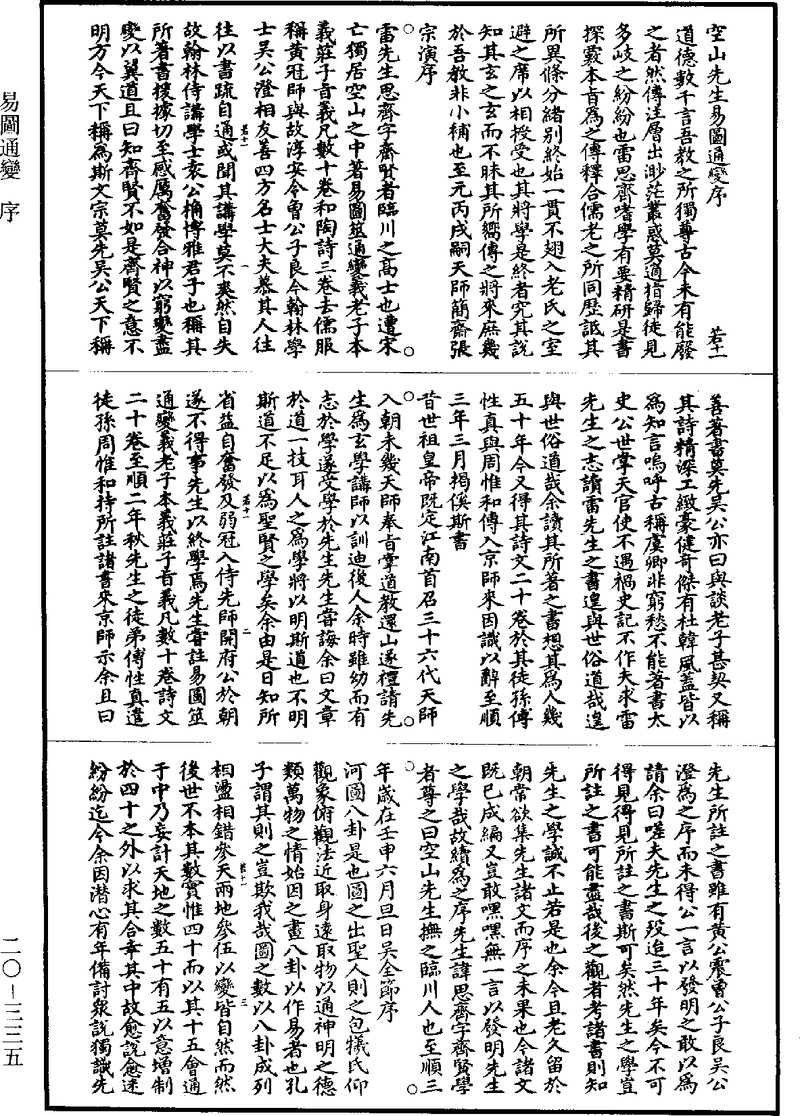 易圖通變 序
二〇—三三五
空山先生易圖通變序
若十一
道德數千言吾教之所獨尊古今未有能廢
之者然傳注層出渺茫叢惑莫適指歸徒見
多岐之紛紛也雷思齊嗜學有要精研是書
探覈本旨爲之傳釋合儒老之所同歷詆其
所異條分緒別終始一貫不翅入老氏之室
避之席以相授受也其將學是終者究其說
知其玄之玄而不昧其所嚮傳之將來庶幾
於吾教非小補也至元丙戌嗣天師簡齋張
宗演序
雷先生思齊字齊賢者臨川之高士也遭宋
亡獨居空山之中著易圖筮通變義老子本
義莊子旨義凡數十卷和陶詩三卷去儒服
稱黃冠師與故淳安令曾公子良今翰林學
士吳公澄相友善四方名士大夫慕其人往
往以書疏自通或聞其講學莫不爽然自失
故翰林侍講學士袁公桷博雅君子也稱其
所著書援據切至感厲奮發合神以窮變盡
變以翼道且曰知齊賢不如是齊賢之意不
明方今天下稱爲斯文宗莫先吳公天下稱
若十一
一
善著書莫先吳公亦曰與談老子甚契又稱
其詩精深工緻豪健奇傑有杜韓風蓋皆以
爲知言嗚呼古稱虞卿非窮愁不能著書太
史公世掌天官使不遇禍史記不作夫求雷
先生之志讀雷先生之書遑與世俗道哉遑
與世俗道哉余讀其所著之書想其爲人幾
五十年今又得其詩文二十卷於其徒孫傅
性真與周惟和傳入京師來因識以辭至順
三年三月揭傒斯書
昔世祖皇帝既定江南首召三十六代天師
入朝未幾天師奉旨掌道教還山遂禮請先
生爲玄學講師以訓迪後人余時雖幼而有
志於學遂受學於先生先生嘗誨余曰文章
於道一技耳人之爲學將以明斯道也不明
斯道不足以爲聖賢之學矣余由是日知所
省益自奮發及弱冠入侍先師開府公於朝
遂不得事先生以終學焉先生嘗註易圖筮
通變義老子本義莊子旨義凡數十卷詩文
二十卷至順二年秋先生之徒弟傅性真遣
徒孫周惟和持所註諸書來京師示余且曰
若十一
二
先生所註之書雖有黃公震曾公子良吳公
澄爲之序而未得公一言以發明之敢以爲
請余曰嗟夫先生之歿迨三十年矣今不可
得見得見所註之書斯可矣然先生之學豈
所註之書可能盡哉後之觀者考諸書則知
先生之學誠不止若是也余今且老久留於
朝常欲集先生諸文而序之未果也今諸文
既已成編又豈敢嘿嘿無一言以發明先生
之學哉故續爲之序先生諱思齊字齊賢學
者尊之曰空山先生撫之臨川人也至順三
年歲在壬申六月旦日吳全節序
河圖八卦是也圖之出聖人則之包犧氏仰
觀象俯觀法近取身遠取物以通神明之德
類萬物之情始因之畫八卦以作易者也孔
子謂其則之豈欺我哉圖之數以八卦成列
相盪相錯參天兩地參伍以變皆自然而然
後世不本其數實惟四十而以其十五會通
于中乃妄計天地之數五十有五以意增制
於四十之外以求其合幸其中故愈說愈迷
紛紛迄今余因潛心有年備討衆說獨識先
若十一
三